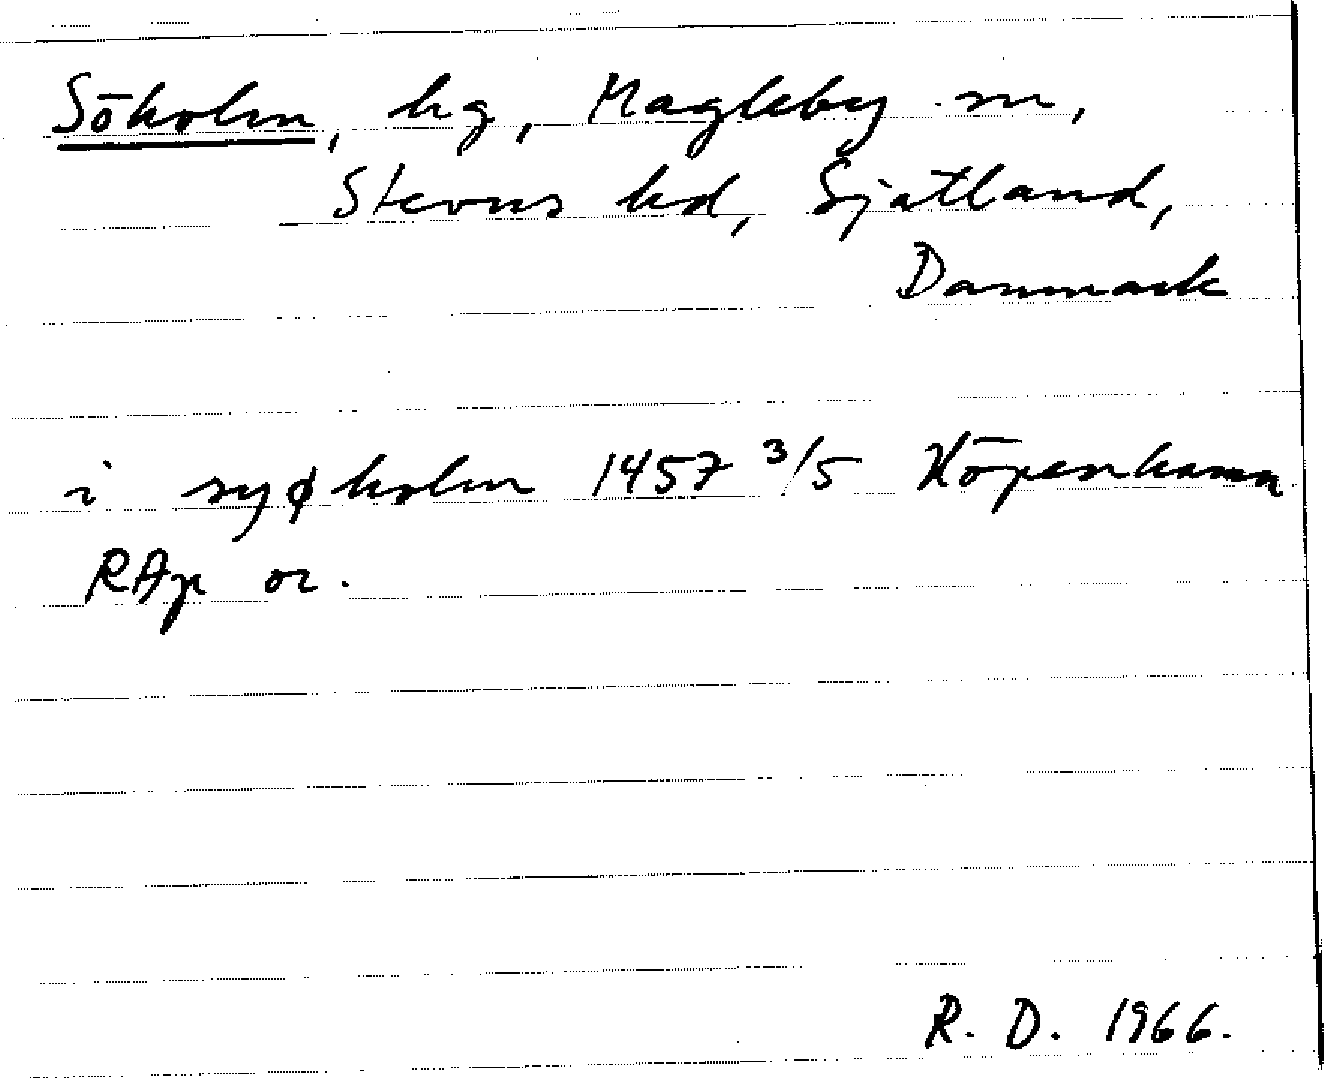 Söholm, hg, Magleby sn,
Stevns hd, Själland,
Danmark
i syøholm 1457 3/5 Köpenhamn
RAp or.
R. D. 1966.